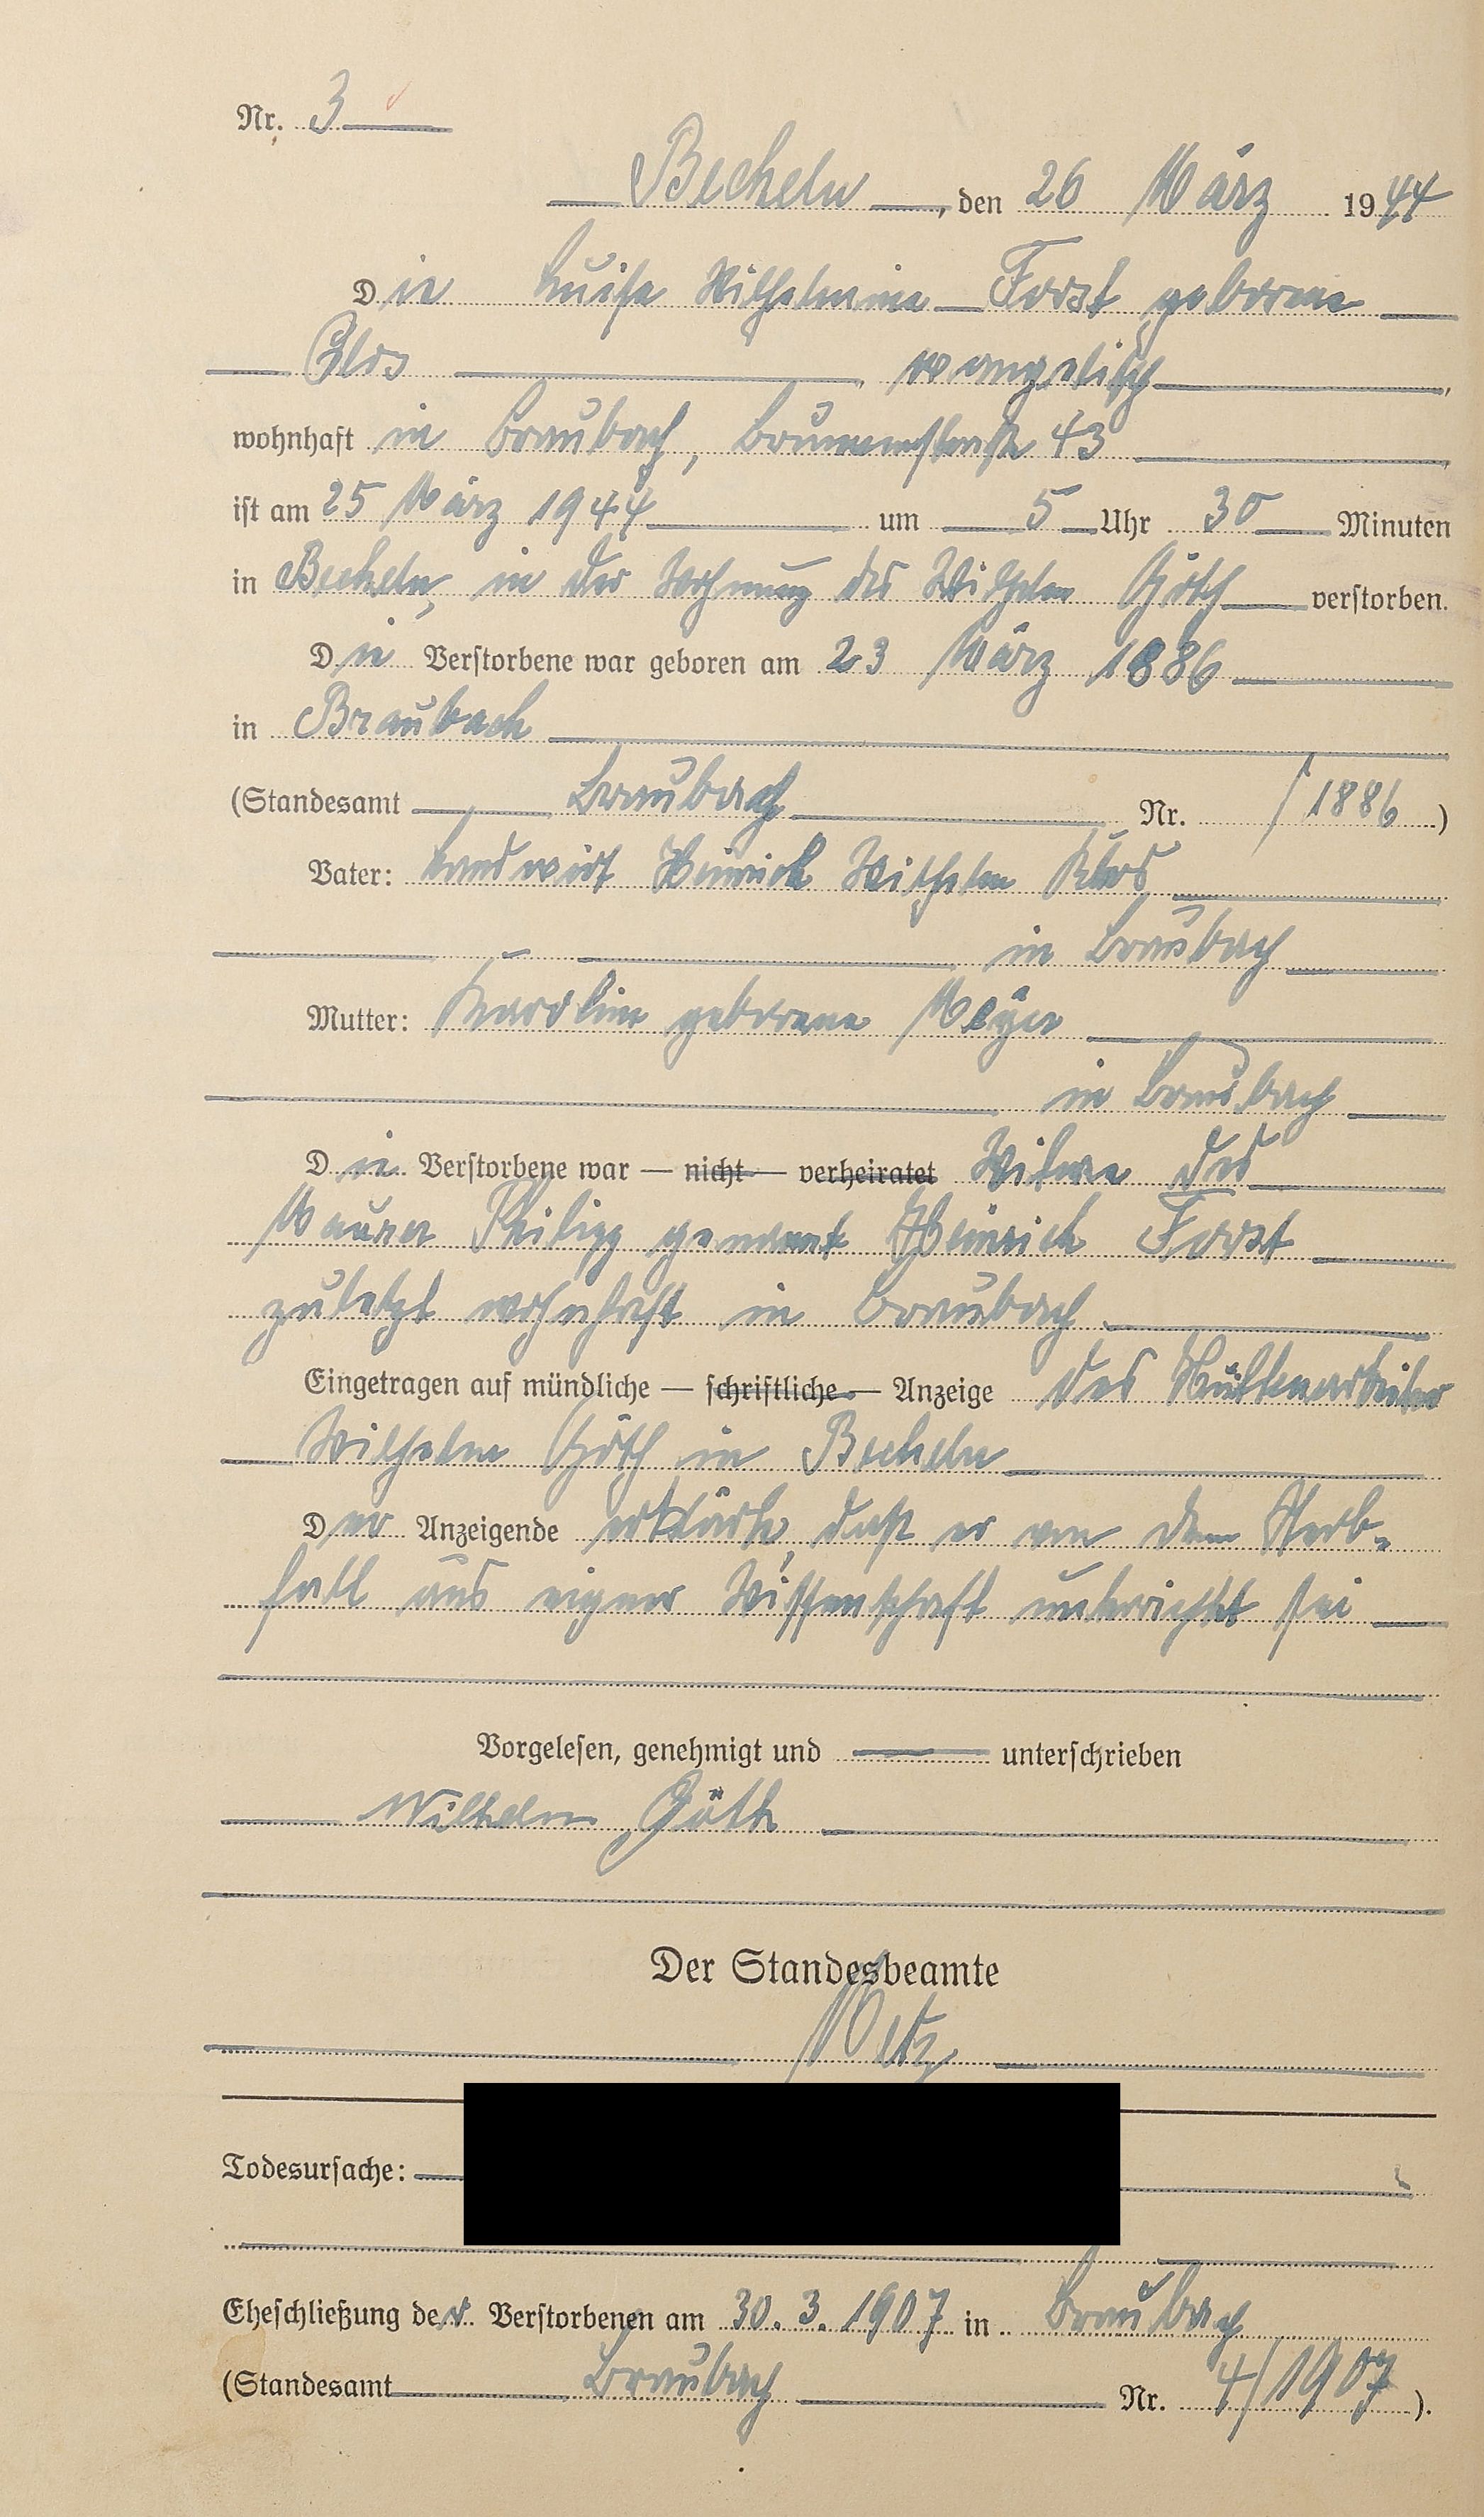 Nr. 3
Becheln, den 26 März 1944
Die Luise Wilhelmine Forst geborene
Clos evangelisch,
wohnhaft in Braubach, Brunnenstraße 43
ist am 25 März 1944 um 5 Uhr 30 Minuten
in Becheln, in der Wohnung des Wilhelm Göth verstorben.
Die Verstorbene war geboren am 23 März 1886
in Braubach
(Standesamt Braubach Nr. /1886)
Vater: Landwirt Heinrich Wilhelm Klos
in Braubach
Mutter: Karoline geborene
in Braubach
Die Verstorbene war — nicht — verheiratet Witwe des
Maurer Philipp genannt Heinrich Forst
zuletzt wohnhaft in Braubach
Eingetragen auf mündliche — schriftliche — Anzeige des Hüttenarbeiter
Wilhelm Göth in Becheln
Der Anzeigende erklärte, daß er von dem Sterb-
fall aus eigner Wissenschaft unterrichtet sei
Vorgelesen, genehmigt und unterschrieben
Wilhelm Göth
Der Standesbeamte
Todesursache:
Eheschließung der Verstorbenen am 30. 3. 1907 in Braubach
(Standesamt Braubach Nr. 4/1907).